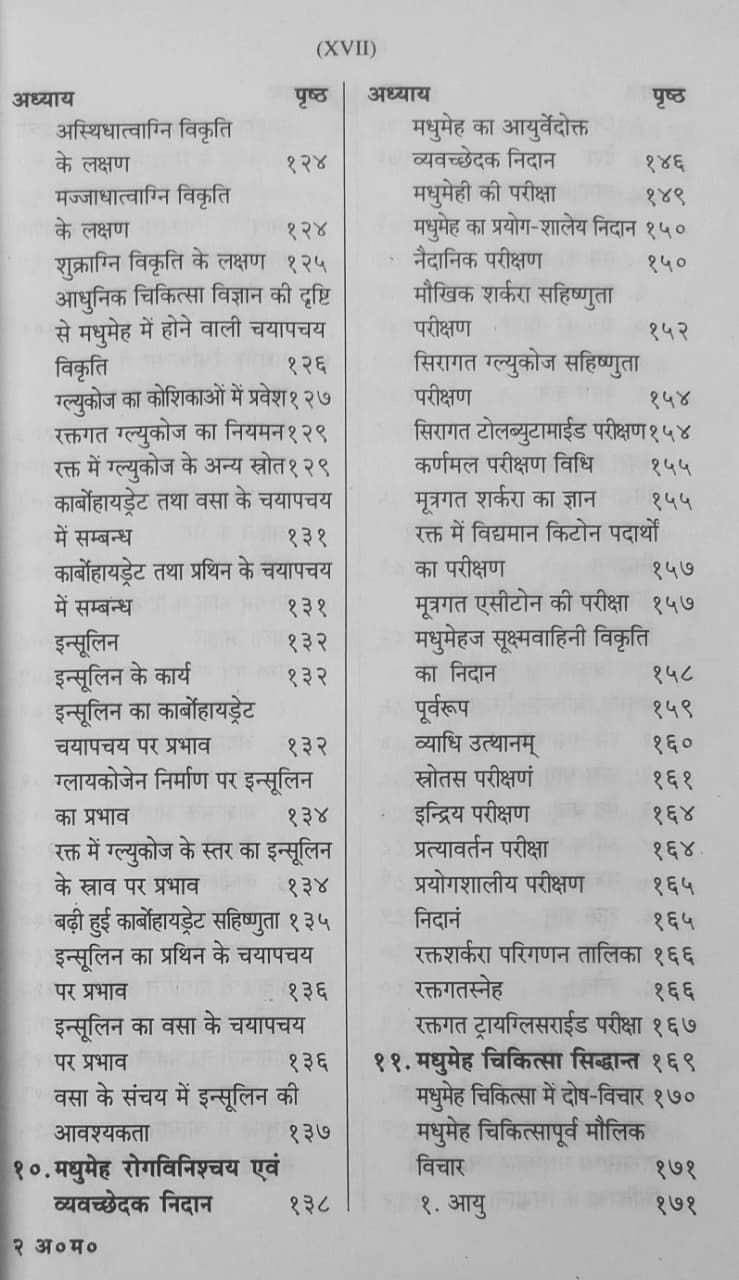 (XVII)
अध्याय पृष्ठ
अस्थिधात्वाग्नि विकृति
के लक्षण १२४
मज्जाधात्वाग्नि विकृति
के लक्षण १२४
शुक्राग्नि विकृति के लक्षण १२५
आधुनिक चिकित्सा विज्ञान की दृष्टि
से मधुमेह में होने वाली चयापचय
विकृति १२६
ग्ल्युकोज का कोशिकाओं में प्रवेश१२७
रक्तगत ग्ल्युकोज का नियमन१२९
रक्त में ग्ल्युकोज के अन्य स्रोत१२९
कार्बोहायड्रेट तथा वसा के चयापचय
में सम्बन्ध १३१
कार्बोहायड्रेट तथा प्रथिन के चयापचय
में सम्बन्ध १३१
इन्सूलिन १३२
इन्सूलिन के कार्य १३२
इन्सूलिन का कार्बोहायड्रेट
चयापचय पर प्रभाव १३२
ग्लायकोजेन निर्माण पर इन्सूलिन
का प्रभाव १३४
रक्त में ग्ल्युकोज के स्तर का इन्सूलिन
के स्राव पर प्रभाव १३४
बढ़ी हुई कार्बोहायड्रेट सहिष्णुता १३५
इन्सूलिन का प्रथिन के चयापचय
पर प्रभाव १३६
इन्सूलिन का वसा के चयापचय
पर प्रभाव १३६
वसा के संचय में इन्सूलिन की
आवश्यकता १३७
१०. मधुमेह रोगविनिश्चय एवं
व्यवच्छेदक निदान १३८
२ अ०म०
अध्याय पृष्ठ
मधुमेह का आयुर्वेदोक्त
व्यवच्छेदक निदान १४६
मधुमेही की परीक्षा १४९
मधुमेह का प्रयोग-शालेय निदान १५०
नैदानिक परीक्षण १५०
मौखिक शर्करा सहिष्णुता
परीक्षण १५२
सिरागत ग्ल्युकोज सहिष्णुता
परीक्षण १५४
सिरागत टोलब्युटामाईड परीक्षण१५४
कर्णमल परीक्षण विधि १५५
मूत्रगत शर्करा का ज्ञान १५५
रक्त में विद्यमान किटोन पदार्थों
का परीक्षण १५७
मूत्रगत एसीटोन की परीक्षा १५७
मधुमेहज सूक्ष्मवाहिनी विकृति
का निदान १५८
पूर्वरूप १५९
व्याधि उत्थानम् १६०
स्रोतस परीक्षणं १६१
इन्द्रिय परीक्षण १६४
प्रत्यावर्तन परीक्षा १६४
प्रयोगशालीय परीक्षण १६५
निदानं १६५
रक्तशर्करा परिगणन तालिका १६६
रक्तगतस्नेह १६६
रक्तगत ट्रायग्लिसराईड परीक्षा १६७
११. मधुमेह चिकित्सा सिद्धान्त १६९
मधुमेह चिकित्सा में दोष-विचार १७०
मधुमेह चिकित्सापूर्व मौलिक
विचार १७१
१. आयु १७१